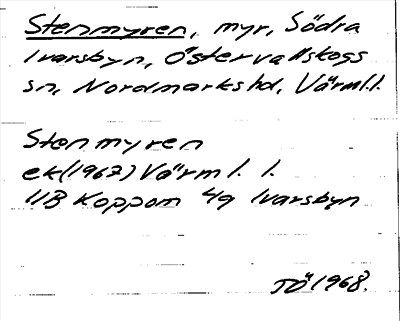 Stenmyren, myr, Södra
Ivarsbyn, Östervallskogs
sn, Nordmarks hd, Värml.l.
Stenmyren
ek (1967) Värml. l.
11B Koppom 4g Ivarsbyn
TÖ 1968.